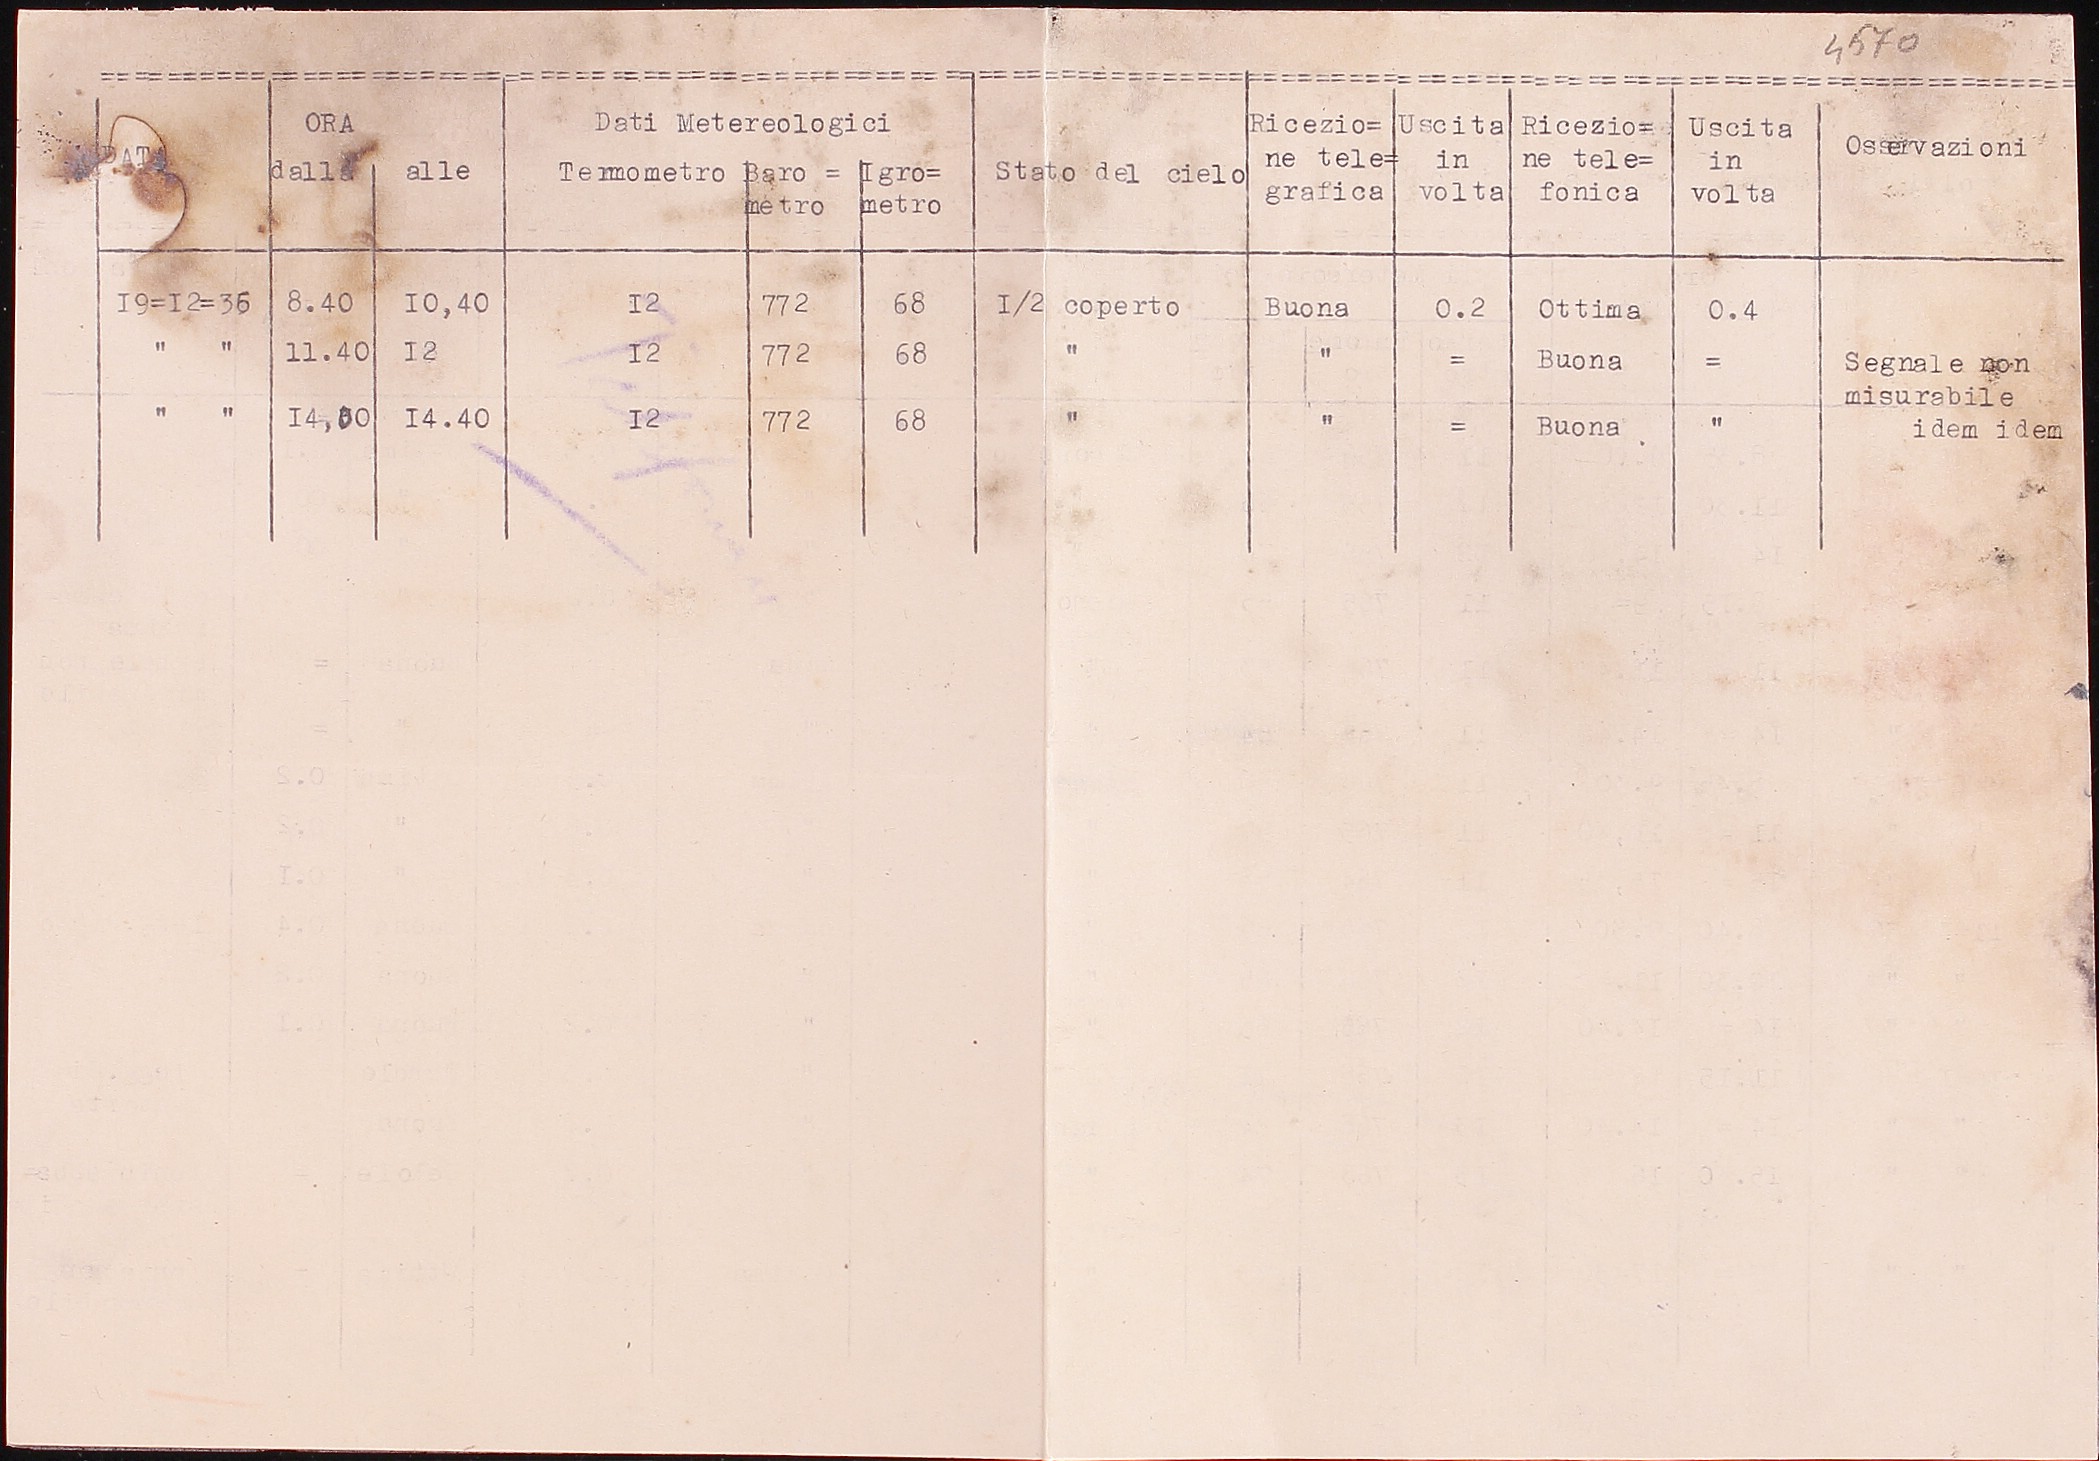 4570
DATA ORA Dati Metereologici Stato del cielo Ricezio= Uscita Ricezio= Uscita Osservazioni
dalle alle Termometro Baro = Igro= ne tele= in ne tele= in
metro metro grafica volta fonica volta
19=12=36 8.40 10,40 12 772 68 1/2 coperto Buona 0.2 Ottima 0.4
" " 11.40 12 12 772 68 " " = Buona = Segnale non
misurabile
" " 14,00 14.40 12 772 68 " " = Buona " idem idem